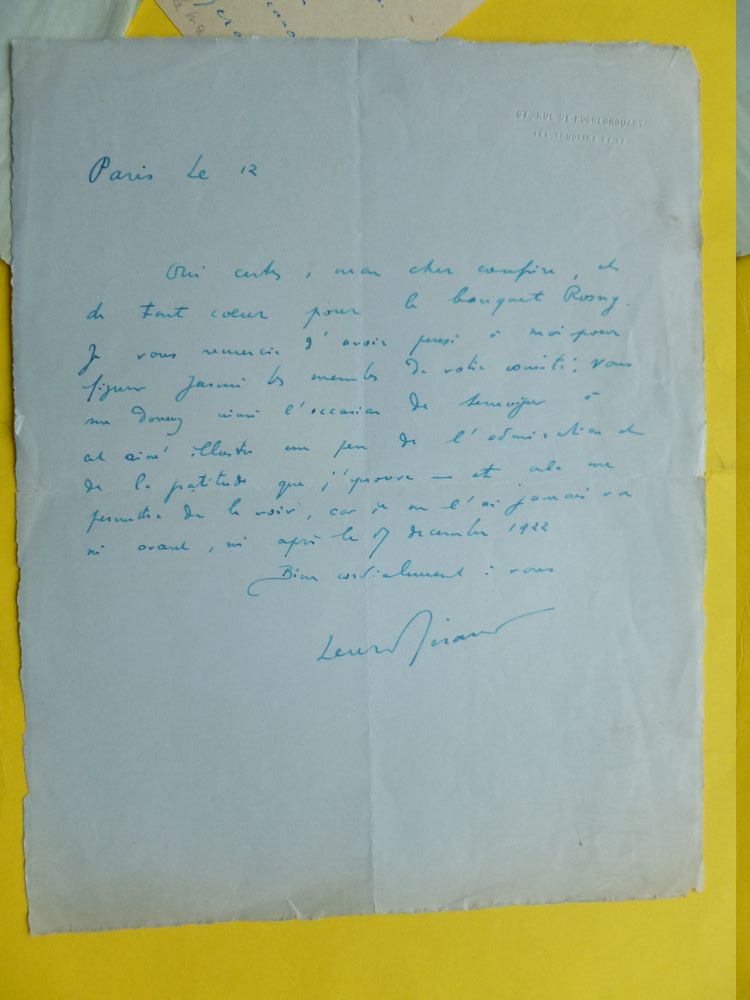 63, RUE DE ROCHECHOUART
Paris Le 12
Oui certes, mon cher confrère, et
de tout coeur pour le banquet Rosny.
Je vous remercie d'avoir pensé à moi pour
figurer parmi les membres de votre comité. Vous
me donnez ainsi l'occasion de témoigner à
cet aîné illustre un peu de l'admiration et
de la gratitude que j'éprouve — et cela me
permettra de le voir, car je ne l'ai jamais vu
ni avant, ni après le 17 décembre 1922
Bien cordialement à vous